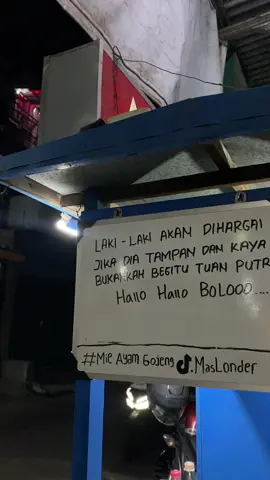 LAKI - LAKI AKAN DIHARGAI
JIKA DIA TAMPAN DAN KAYA
BUKANKAH BEGITU TUAN PUTR
Hallo Hallo BOLOOO....
#MIE AYAM GOJENG MASLONDER